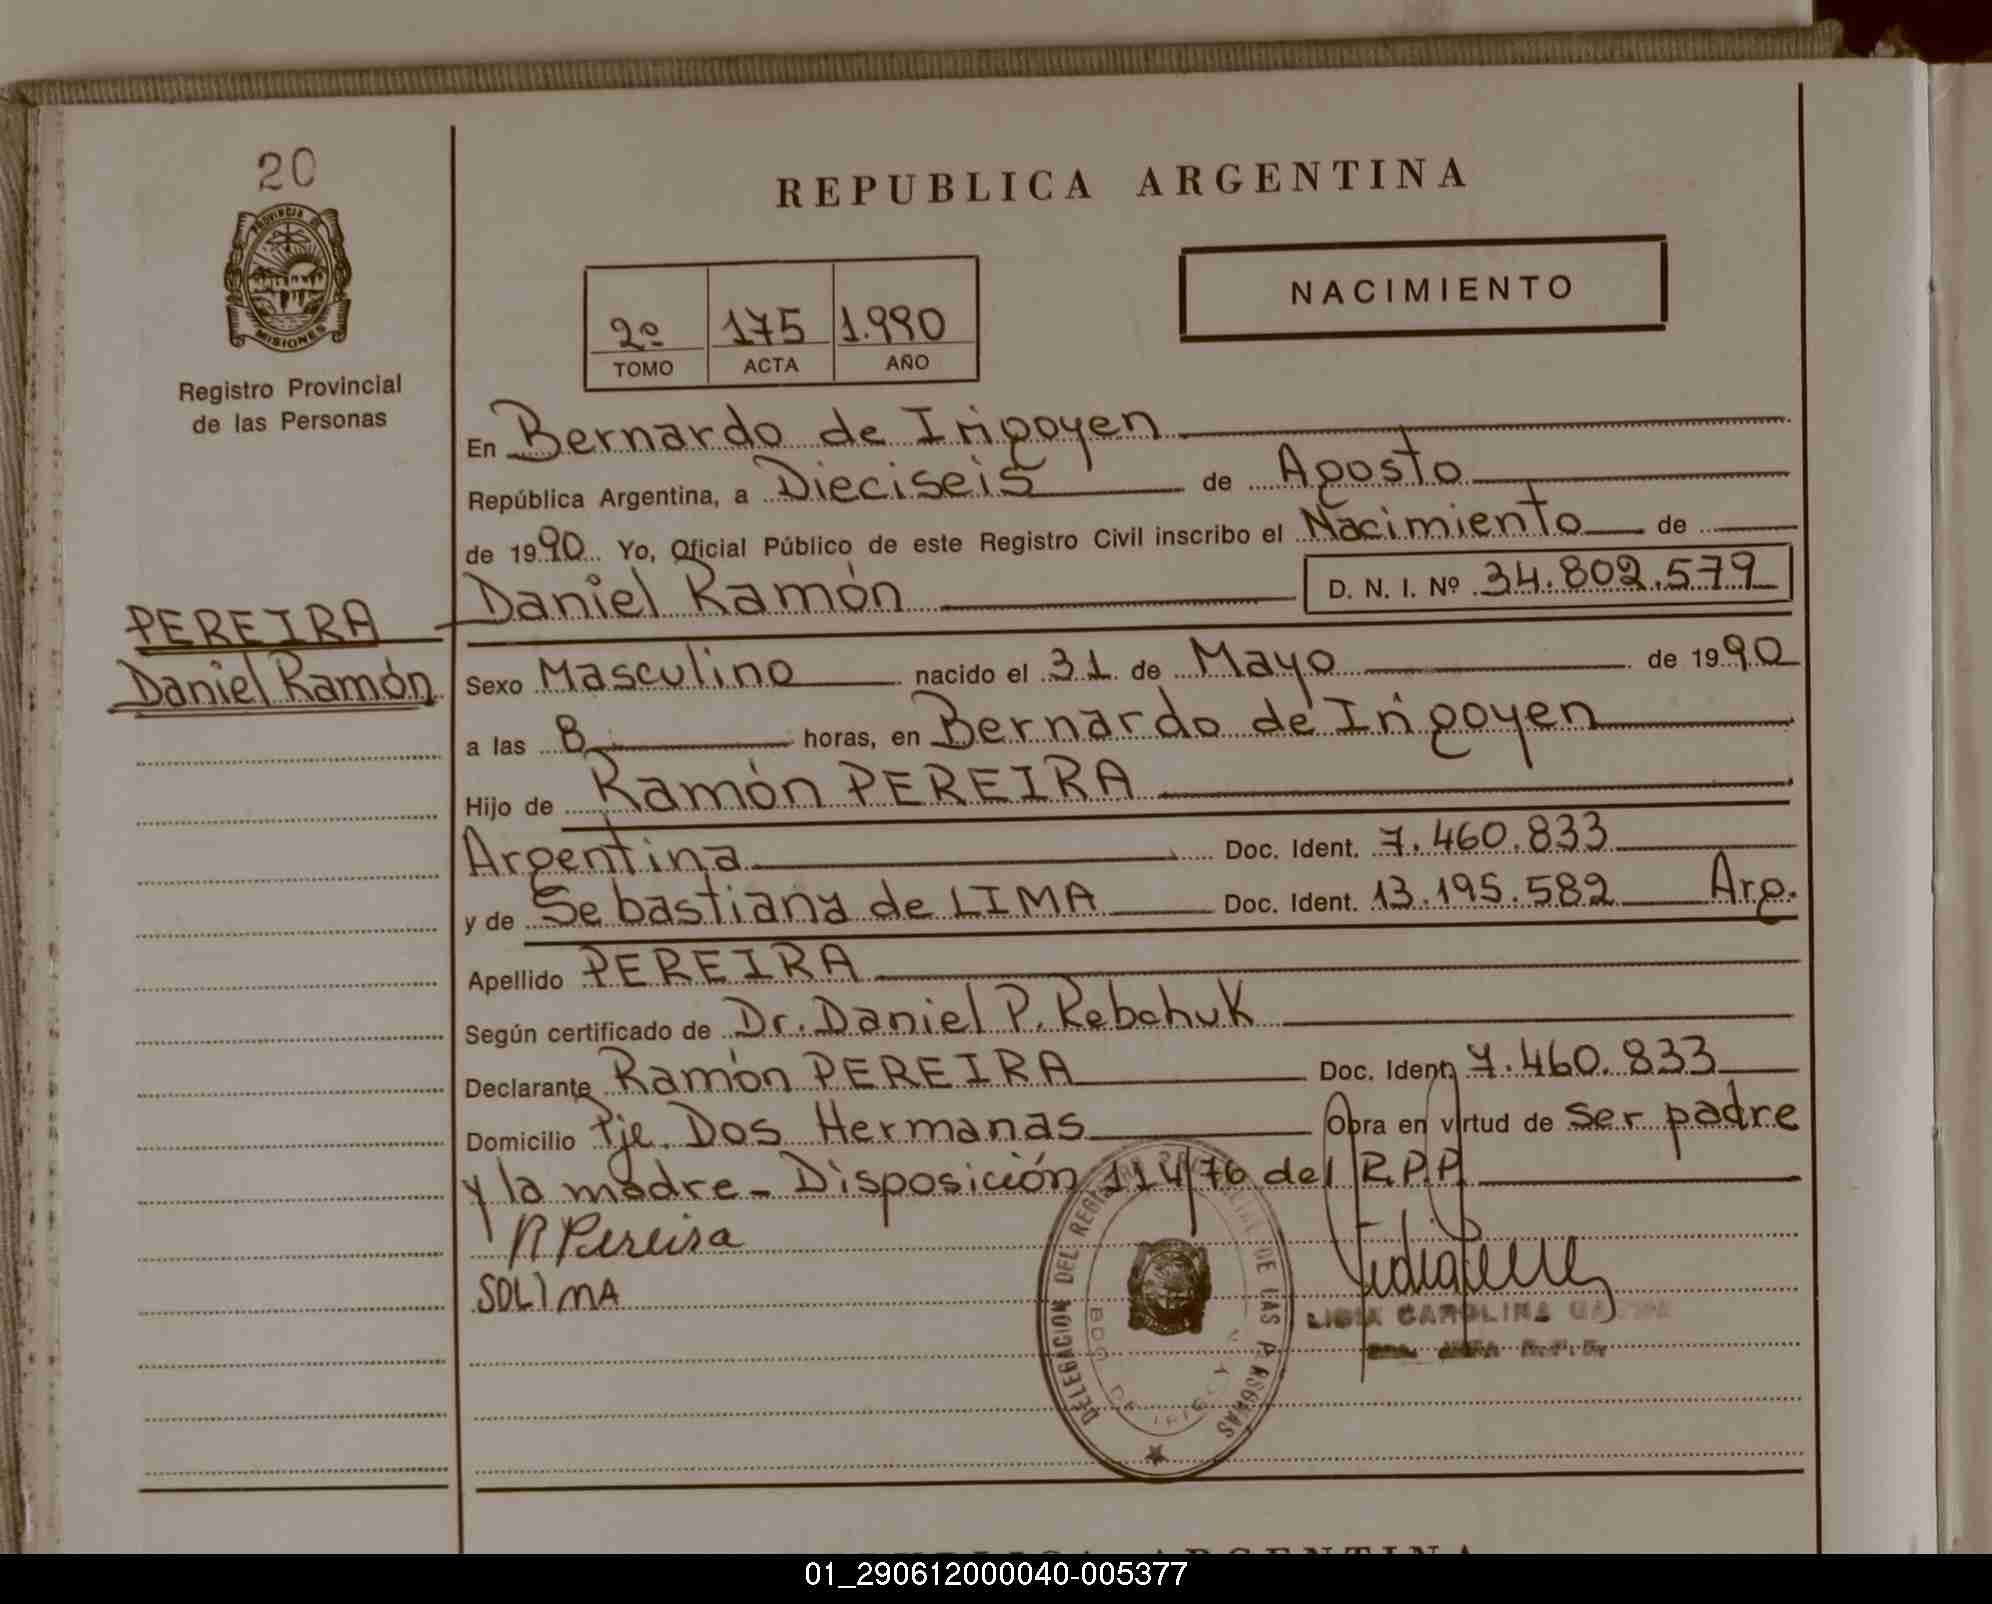 20
PROVINCIA
MISIONES
Registro Provincial
de las Personas
REPUBLICA ARGENTINA
NACIMIENTO
2º 175 1.990
TOMO ACTA AÑO
En Bernardo de Irigoyen
República Argentina, a Dieciseis de Agosto
de 1990 Yo, Oficial Público de este Registro Civil inscribo el Nacimiento de
Daniel Ramón D. N. I. Nº 34.802.579
PEREIRA
Daniel Ramón
Sexo Masculino nacido el 31 de Mayo de 1990
a las 8 horas, en Bernardo de Irigoyen
Hijo de Ramón PEREIRA
Argentina Doc. Ident. 7.460.833
y de Sebastiana de LIMA Doc. Ident. 13.195.582 Arg.
Apellido PEREIRA
Según certificado de Dr. Daniel P. Rebchuk
Declarante Ramón PEREIRA Doc. Ident. 7.460.833
Domicilio Pje. Dos Hermanas Obra en virtud de ser padre
y la madre - Disposición 114/76 del R.P.P.
R Pereira
SDLIMA
DELEGACION DEL REGISTRO PROVINCIAL DE LAS PERSONAS
BDO DE IRIGOYEN
LIGIA CAROLINA
REPUBLICA ARGENTINA
01_290612000040-005377